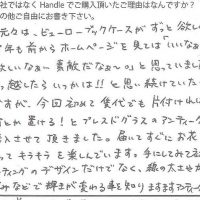 社ではなく Handle でご購入頂いたご理由はなんですか？
の他ご自由にお書き下さい。
元々は、ビューローブックケースがずっと欲し
年も前からホームページを見ては「いいなぁ
欲しいなぁ〜 素敵だなぁ〜」と思っていまし
っ越したらいつかは!!と思い続けていた
ですが、今回初めて食代でも片付ければ
何とか置ける！とプレスドグラスのアンティー
入させて頂きました。届いてすぐにお花
ってキラキラを楽しんでいます。手にしてみて初
ティングのデザインだけでなく、縁の太さや
みなどで輝きが変わる事を知りますますアンティ